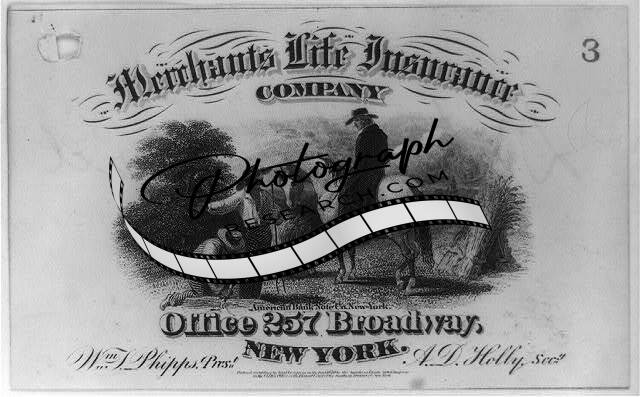 Merchants Life Insurance
3
COMPANY
Photograph
RESEARCH.COM
American Bank Note Co. New-York.
Office 257 Broadway,
NEW YORK.
Wm. T. Phipps, Prest.
A. D. Holly, Secy.